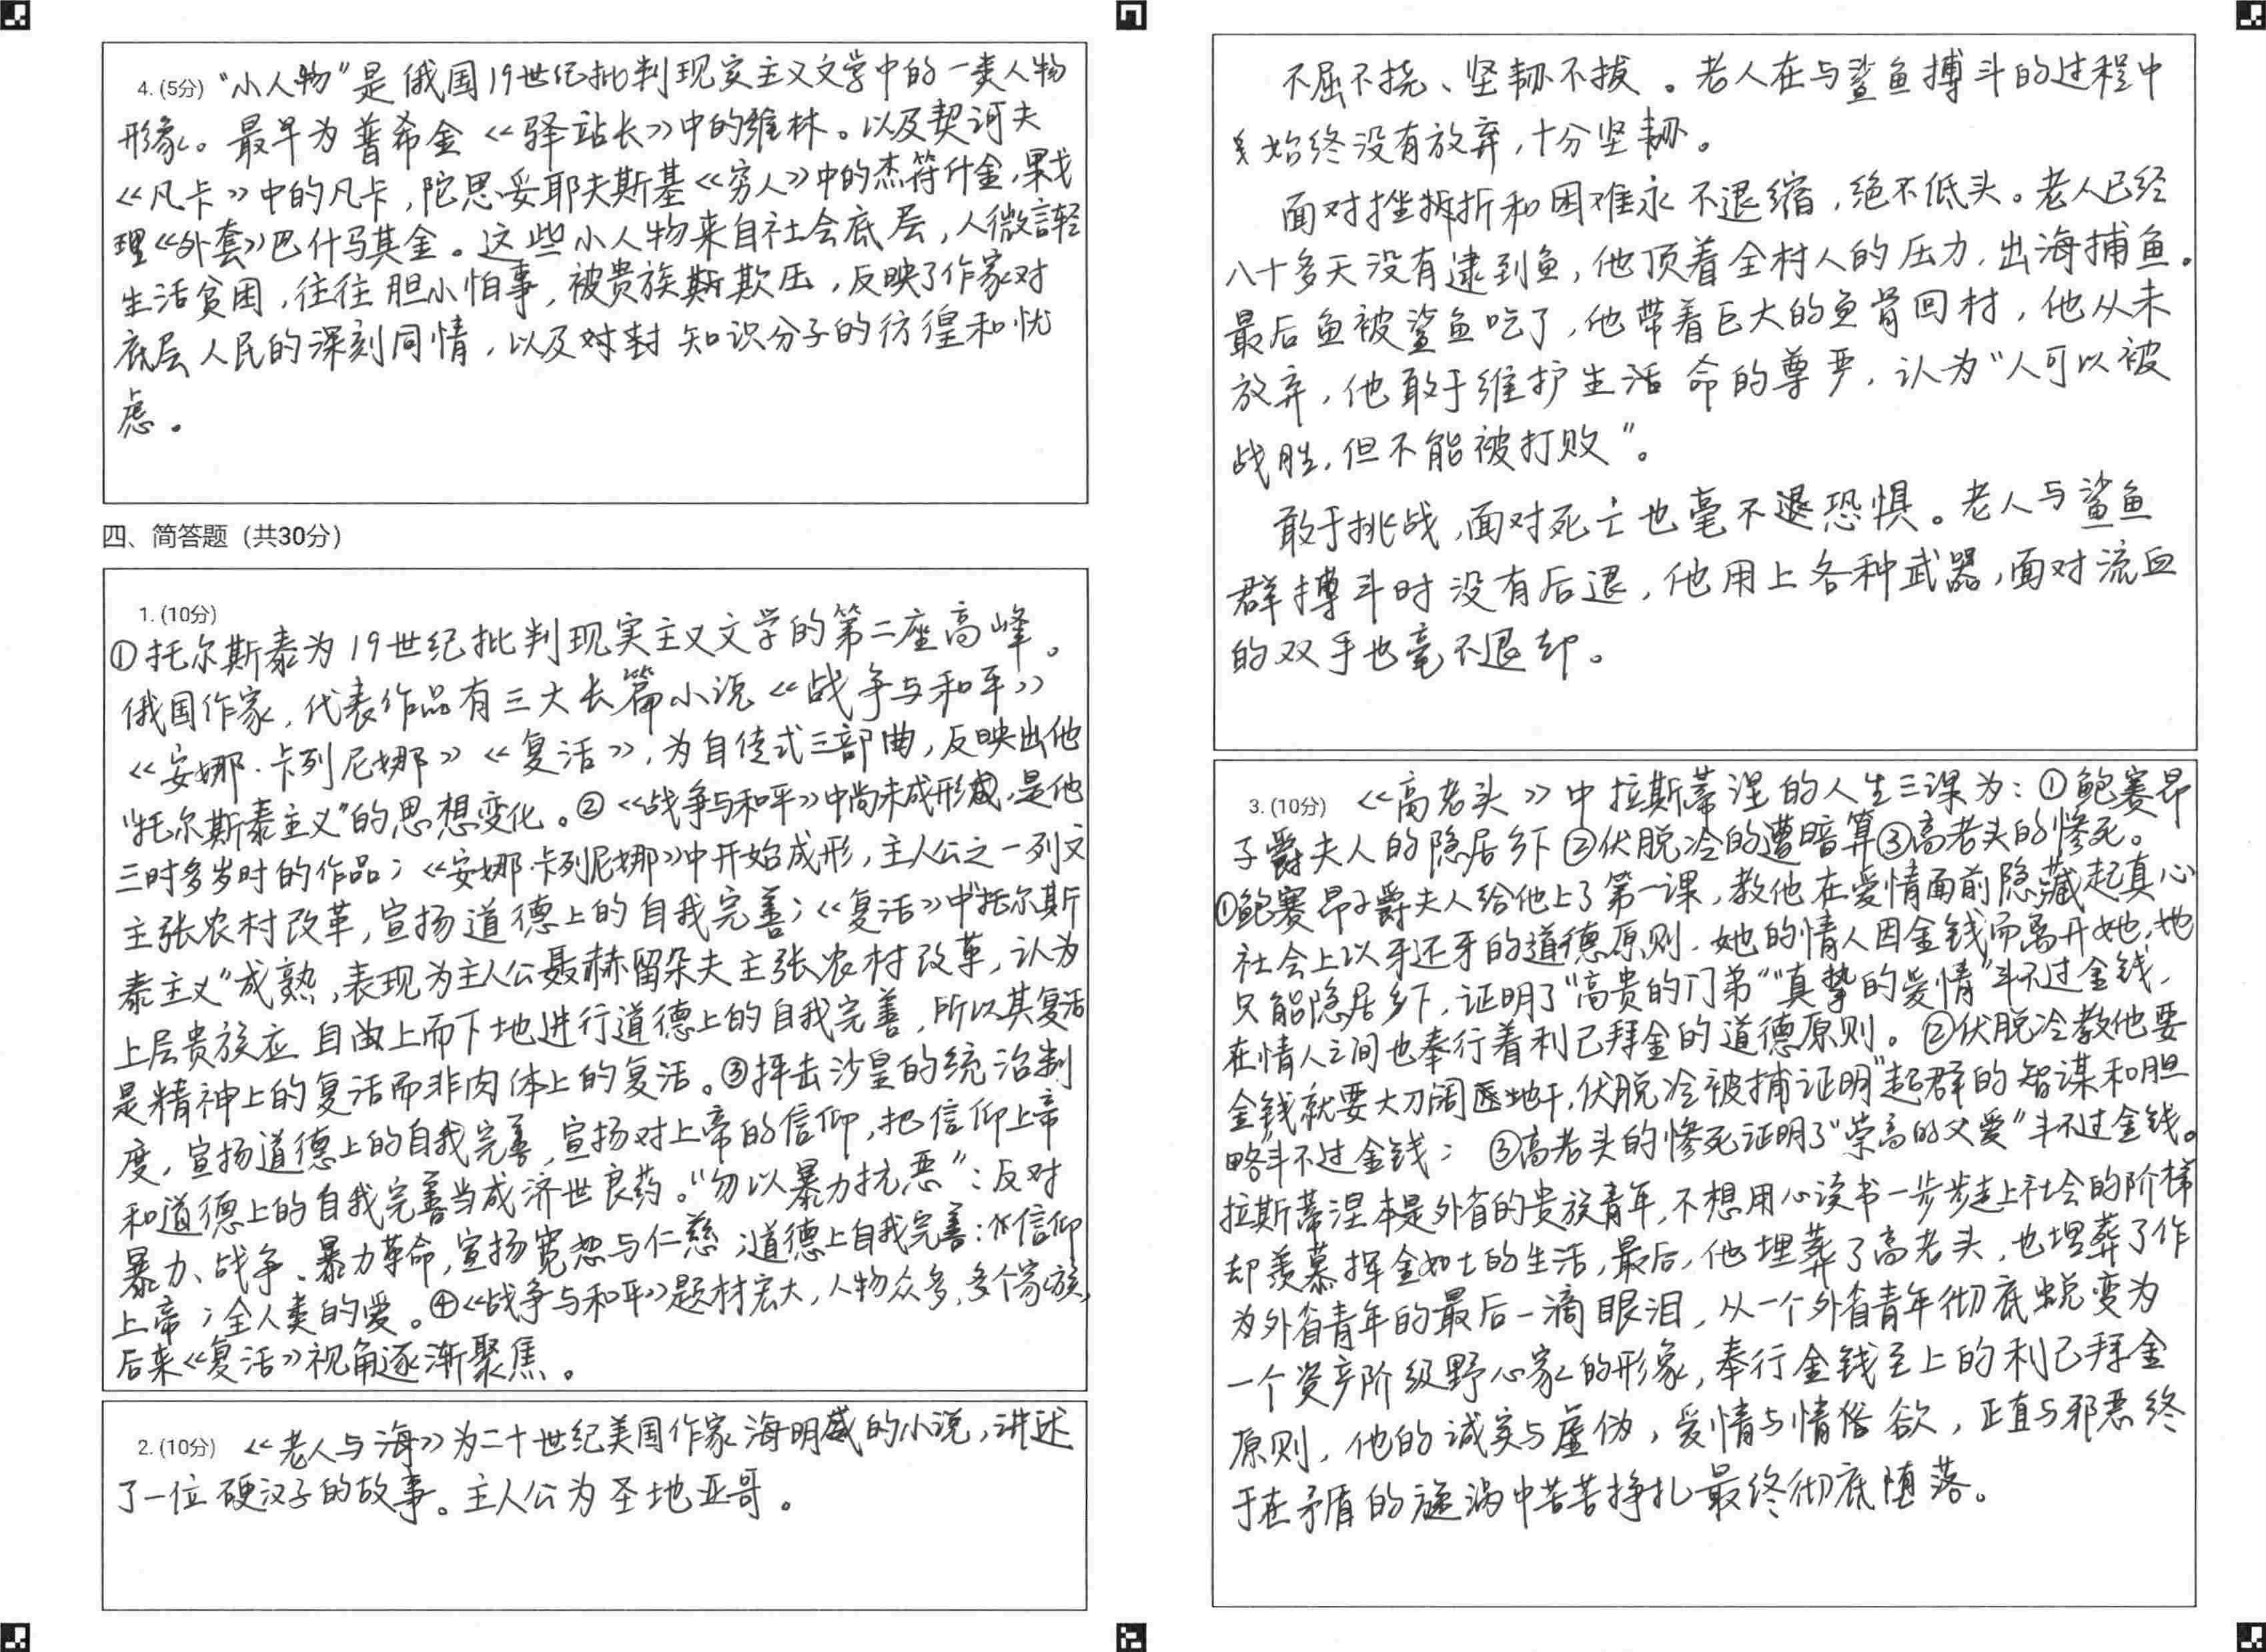 4. (5分) “小人物”是俄国19世纪批判现实主义文学中的一类人物
形象。最早为普希金《驿站长》中的维林。以及契诃夫
《凡卡》中的凡卡，陀思妥耶夫斯基《穷人》中的杰符什金，果戈
理《外套》巴什马其金。这些小人物来自社会底层，人微言轻
生活贫困，往往胆小怕事，被贵族欺压，反映了作家对
底层人民的深刻同情，以及对 知识分子的彷徨和忧
虑。
四、简答题（共30分）
1. (10分)
①托尔斯泰为19世纪批判现实主义文学的第二座高峰。
俄国作家，代表作品有三大长篇小说《战争与和平》
《安娜·卡列尼娜》《复活》，为自传式三部曲，反映出他
“托尔斯泰主义”的思想变化。②《战争与和平》中尚未成形，是他
三时多岁时的作品；《安娜·卡列尼娜》中开始成形，主人公之一列文
主张农村改革，宣扬道德上的自我完善；《复活》中“托尔斯
泰主义”成熟，表现为主人公聂赫留朵夫主张农村改革，认为
上层贵族应自由上而下地进行道德上的自我完善，所以其复活
是精神上的复活而非肉体上的复活。③抨击沙皇的统治制
度，宣扬道德上的自我完善，宣扬对上帝的信仰，把信仰上帝
和道德上的自我完善当成济世良药。“勿以暴力抗恶”：反对
暴力、战争、暴力革命，宣扬宽恕与仁慈；道德上自我完善：信仰
上帝；全人类的爱。④《战争与和平》题材宏大，人物众多，多个家族，
后来《复活》视角逐渐聚焦。
2. (10分) 《老人与海》为二十世纪美国作家海明威的小说，讲述
了一位硬汉子的故事。主人公为圣地亚哥。
不屈不挠、坚韧不拔。老人在与鲨鱼搏斗的过程中
始终没有放弃，十分坚韧。
面对挫折和困难永不退缩，绝不低头。老人已经
八十多天没有逮到鱼，他顶着全村人的压力，出海捕鱼。
最后鱼被鲨鱼吃了，他带着巨大的鱼骨回村，他从未
放弃，他敢于维护生命的尊严，认为“人可以被
战胜，但不能被打败”。
敢于挑战，面对死亡也毫不恐惧。老人与鲨鱼
群搏斗时没有后退，他用上各种武器，面对流血
的双手也毫不退却。
3. (10分) 《高老头》中拉斯蒂涅的人生三课为：①鲍赛昂
子爵夫人的隐居乡下②伏脱冷的遭暗算③高老头的惨死。
①鲍赛昂子爵夫人给他上了第一课，教他在爱情面前隐藏起真心
社会上以牙还牙的道德原则，她的情人因金钱而离开她，她
只能隐居乡下，证明了“高贵的门第”“真挚的爱情”斗不过金钱，
在情人之间也奉行着利己拜金的道德原则。②伏脱冷教他要
金钱就要大刀阔地干，伏脱冷被捕证明“超群的智谋和胆
略”斗不过金钱；③高老头的惨死证明了“崇高的父爱”斗不过金钱。
拉斯蒂涅本是外省的贵族青年，不想用心读书一步步走上社会的阶梯
却羡慕挥金如土的生活，最后，他埋葬了高老头，也埋葬了作
为外省青年的最后一滴眼泪，从一个外省青年彻底蜕变为
一个资产阶级野心家的形象，奉行金钱至上的利己拜金
原则，他的诚实与虚伪，爱情与情欲，正直与邪恶终
于在矛盾的旋涡中苦苦挣扎最终彻底堕落。